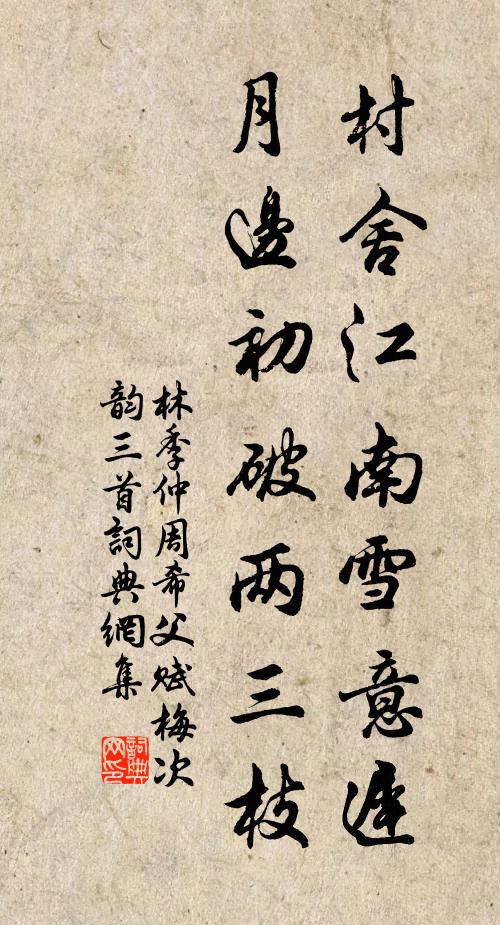 村舍江南雪意遲
月邊初破两三枝
林季仲周希父赋梅次
韵三首詞典網集
詞典网印